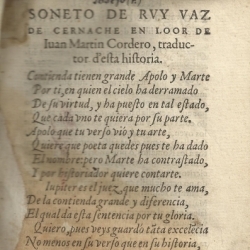 SONETO DE RVY VAZ
DE CERNACHE EN LOOR DE
Iuan Martin Cordero, traduc-
tor d'esta historia.
Contienda tienen grande Apolo y Marte
Por ti, en quien el cielo ha derramado
De su virtud, y ha puesto en tal estado,
Que cada vno te quiera por su parte.
Apolo que tu verso vio y tu arte,
Quiere que poeta quedes pues te ha dado
El nombre: pero Marte ha contrastado,
I por historiador quiere contarte.
Iupiter es el juez, que mucho te ama,
De la contienda grande, y diferencia,
El qual da esta sentencia por tu gloria.
Quiero, pues veys guardò tāta excelēcia
No menos en su verso que en su historia,